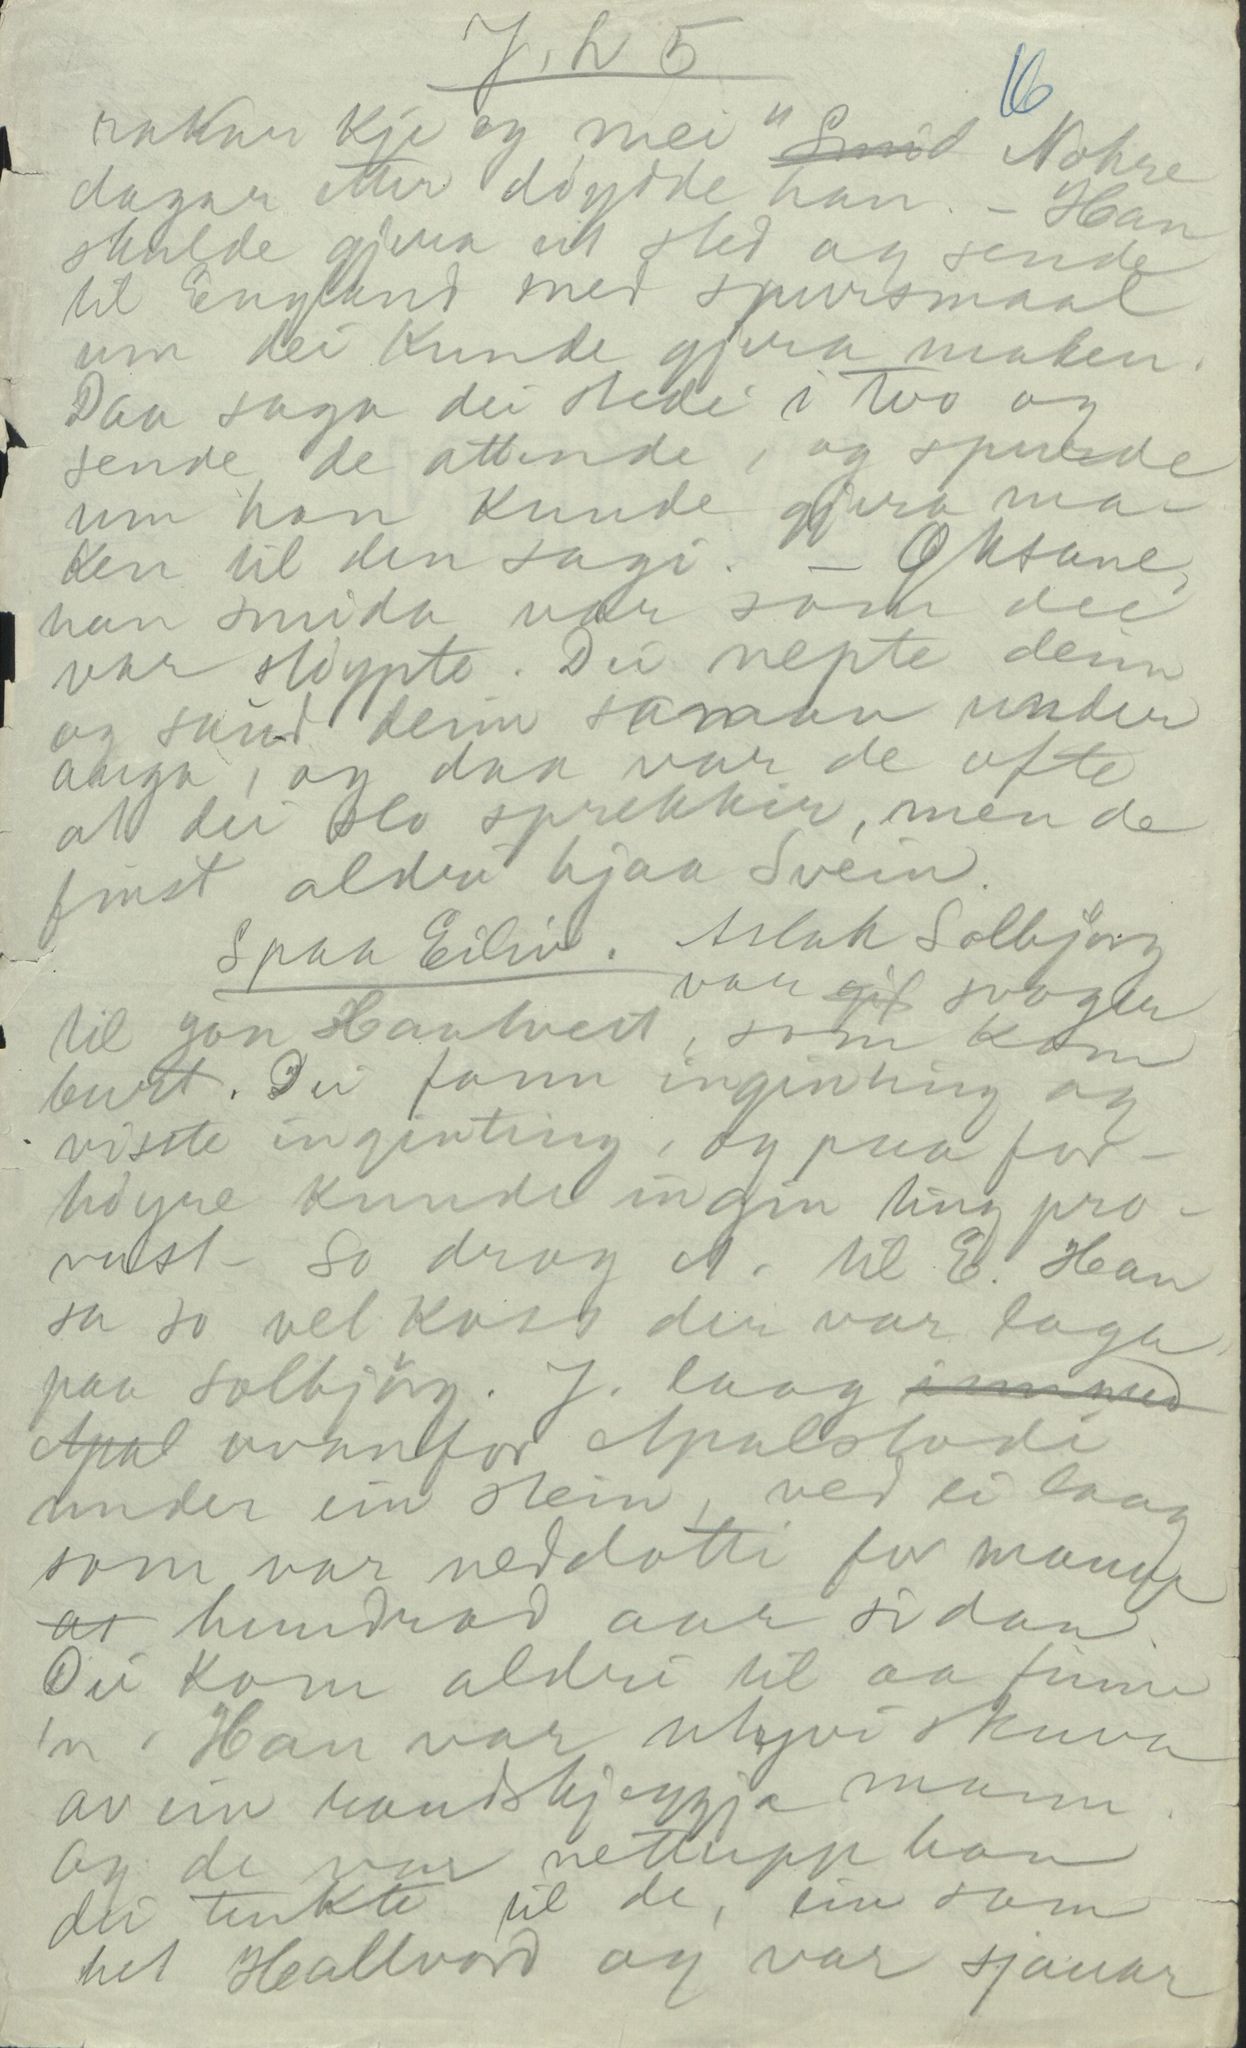 J. h 5
16
rakar kje eg mei" ~~Smid~~ Nokre
dagar etter döydde han. – Han
skulde gjera eit sted og sende
til England med spursmaal
um dei kunde gjera maken.
Daa saga dei stedi i tvo og
sende de attende, og spurde
um han kunde gjera ma-
ken til den sagi. – Öksane,
han smida var som dei
var stöypte. Dei nepte deim
og saud deim saman under
auga, og daa var de ofte
at dei slo sprekkir, men de
finst aldri hjaa Svein.
Spaa Eiliv. Aslak Solbjörg
var ~~gif~~ svoger
til Jon Hantveit, som kom
burt. Dei fann inginting og
visste inginting, og paa for-
höyre kunde ingin ting pro-
vast – So drog A. til E. Han
sa so vel koss der var laga
paa Solbjörg. J. laag ~~innmed~~
~~Apal~~ ovanfor Apalstodi
under ein stein, ved ei laag
som var neddotti for mange
~~as~~ hundrad aar sidan.
Dei kom aldri til aa finne
'n. Han var utyvi skuva
av ein raudskjeggja mann.
Og de var nettupp han
dei tenkte til de, ein som
het Hallvord og var sjauar